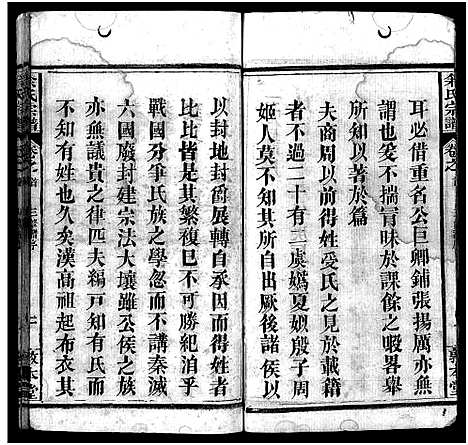 余氏宗譜
敦本堂
耳必借重名公巨卿鋪張揚厲亦無
謂也爰不揣冒昧於課餘之暇畧舉
所知以著於篇
夫商周以前得姓受氏之見於載籍
者不過二十有二虞嬀夏姒殷子周
姬人莫不知其所自出厥後諸侯以
以封地封爵展轉自承因而得姓者
比比皆是其繁複已不可勝紀消乎
戰國分爭氏族之學忽而不講秦滅
六國廢封建宗法大壞雖公侯之族
亦無議貴之律匹夫編戸知有氏而
不知有姓也久矣漢高祖起布衣其
余氏宗譜
敦本堂